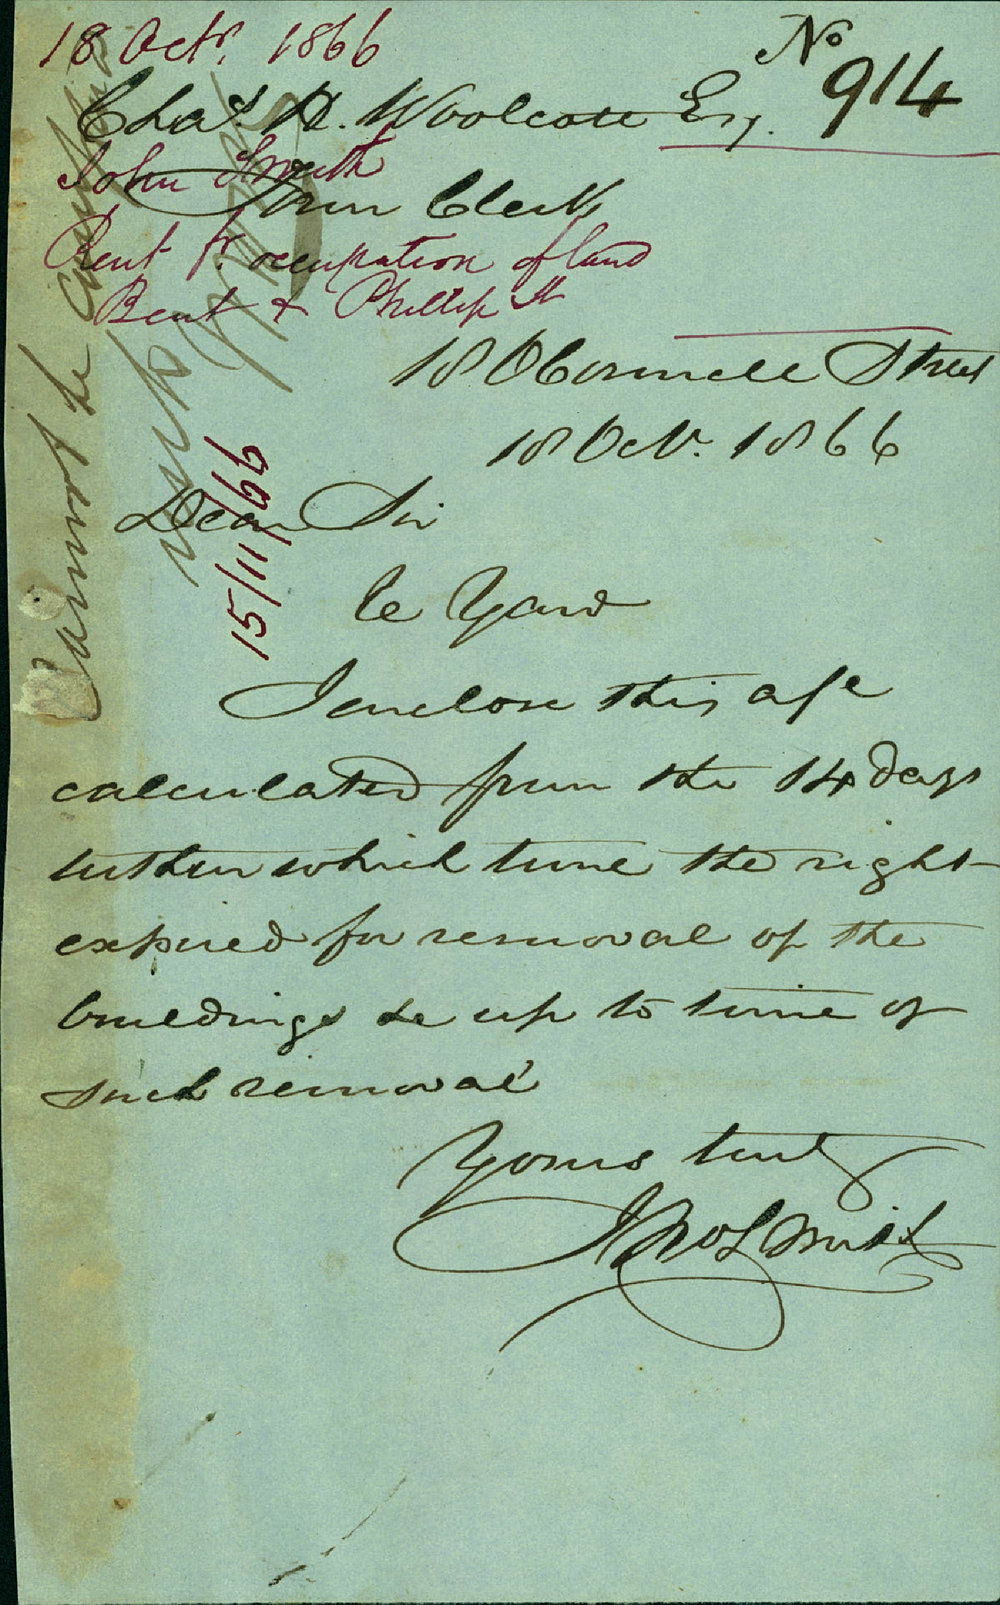 18 Octr. 1866
No 914
Chas. H. Woolcott Esq.
John Smith
Town Clerk
Rent fr. occupation of land
Bent & Phillip St
18 OConnell Street
18 Octr. 1866
Dear Sir
re Yard
I enclose this a/c
calculated from the 14 days
within which time the right
expired for removal of the
buildings &c up to time of
such removal
Yours truly
Jno Smith
Cannot be
15/11/66